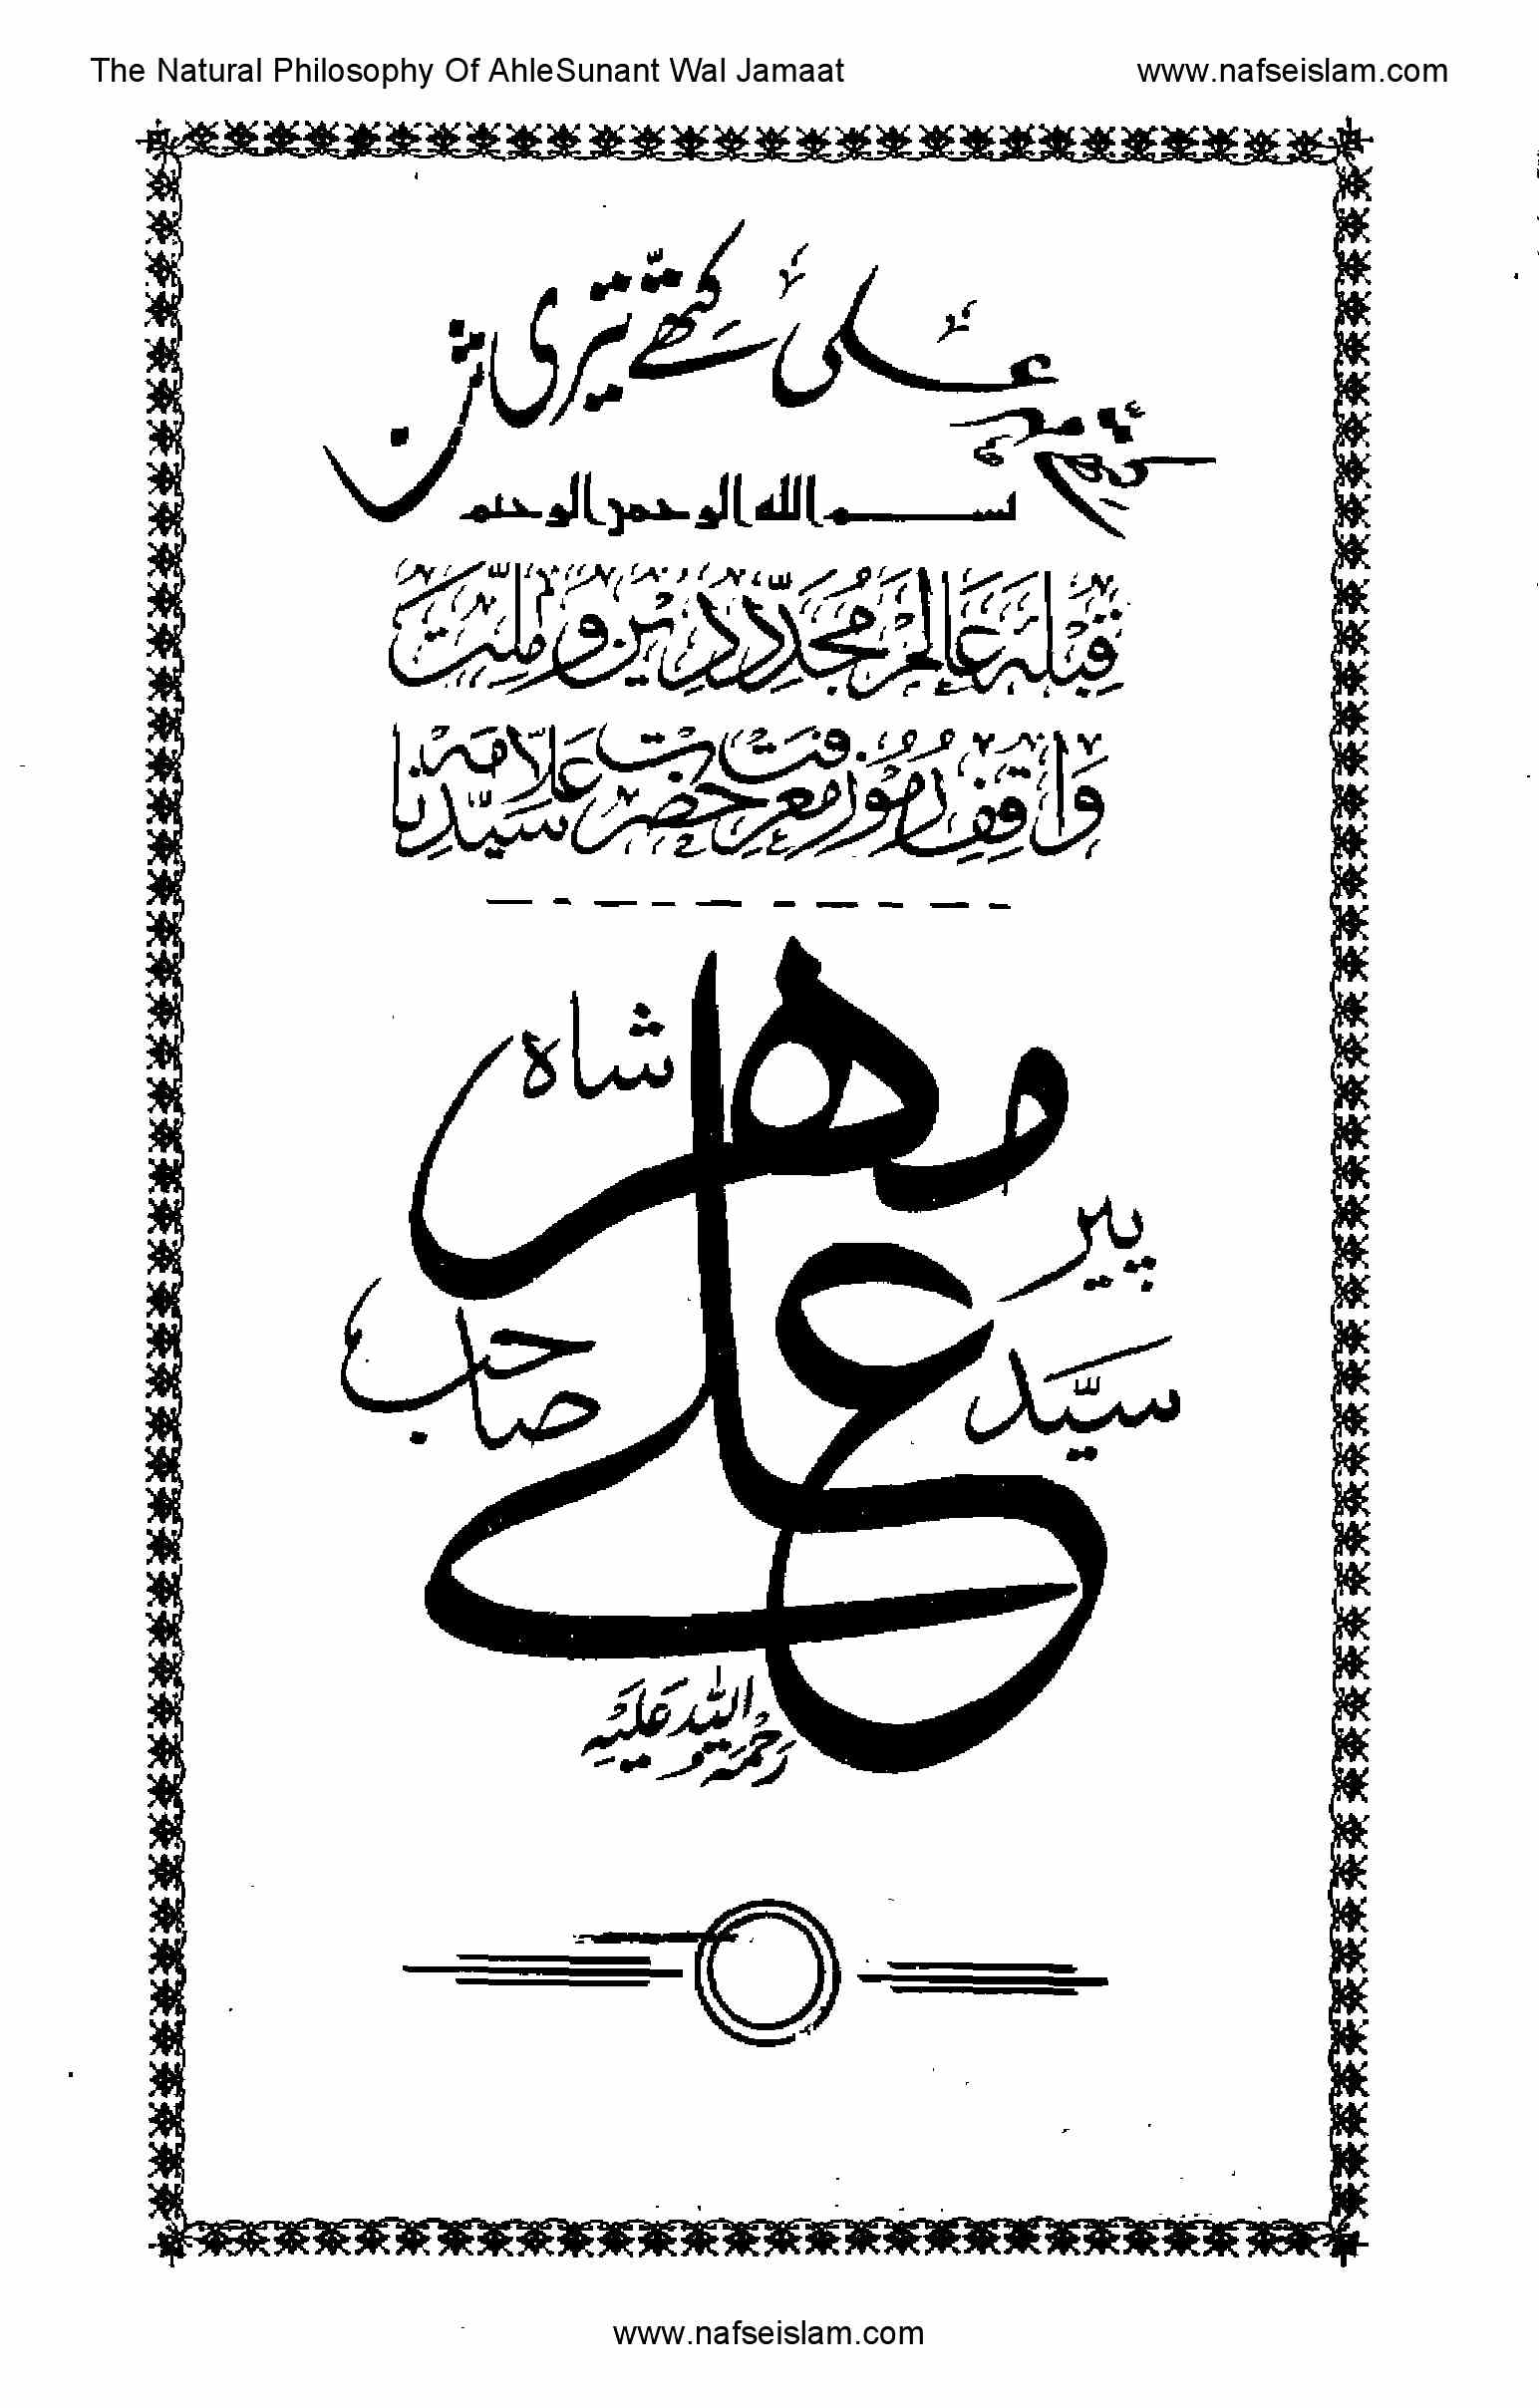 The Natural Philosophy Of AhleSunant Wal Jamaat www.nafseislam.com
کتھے مہر علی کتھے تیری ثن
بسم الله الرحمن الرحيم
قبلہ عالم مجدد دین و ملت
واقف رموز معرفت حضرت علامہ سیدنا
پیر سید
مهر علی
شاہ
صاحب
رحمة الله عليه
www.nafseislam.com